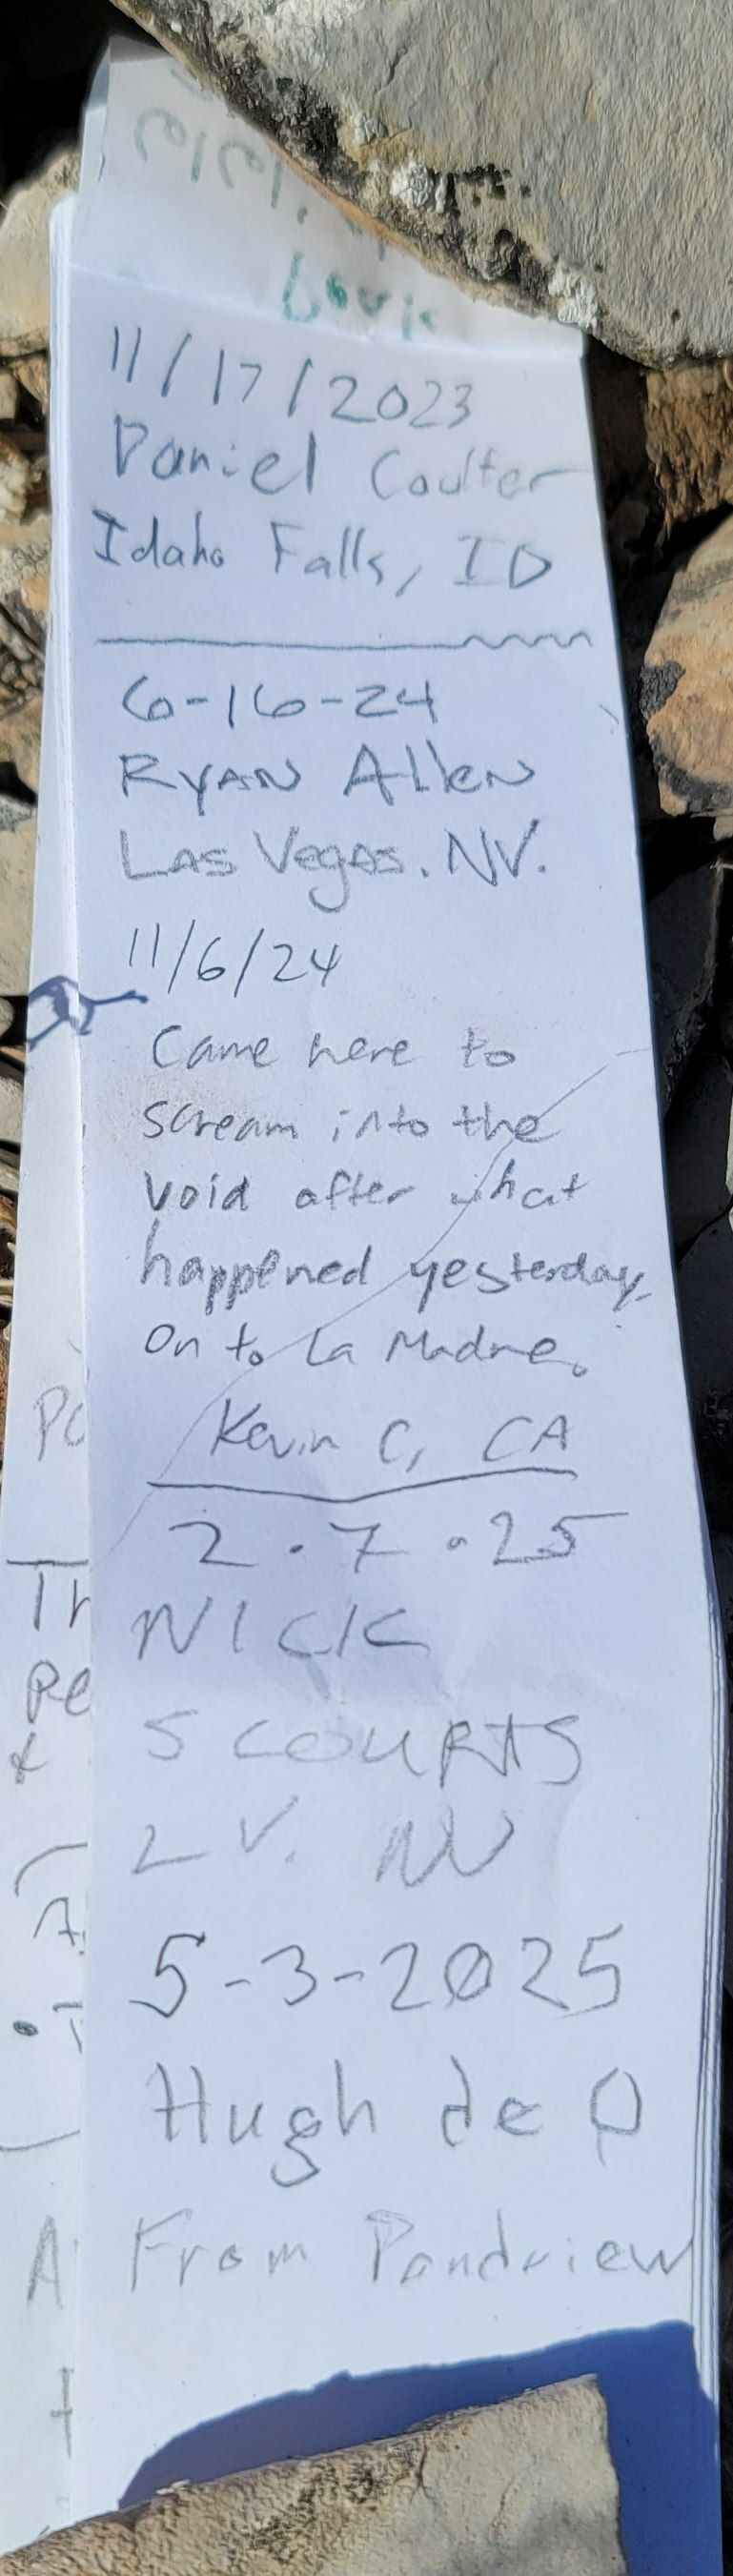 11/17/2023
Daniel Coulter
Idaho Falls, ID
6-16-24
RYAN Allen
LAS Vegas. NV.
11/6/24
Came here to
scream into the
void after what
happened yesterday.
On to La Madre.
Kevin C, CA
2.7.25
NICK
5 COURTS
LV. NV
5-3-2025
Hugh de Q
From Pandview